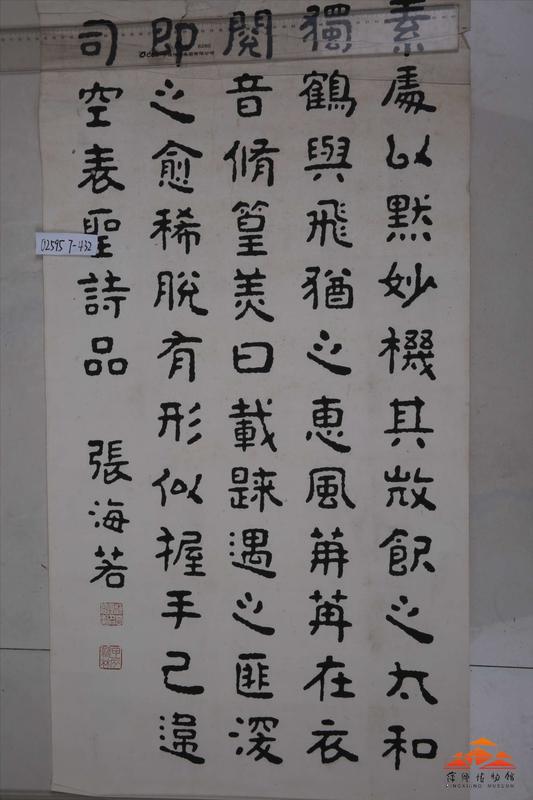 素處以默妙機其微飲之太和
獨鶴與飛猶之惠風苒苒在衣
閱音脩篁美曰載歸遇之匪深
即之愈稀脫有形似握手已違
司空表聖詩品
張海若
02595 7-432
萍鄉博物館
PINGXIANG MUSEUM